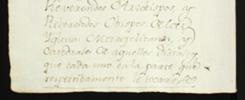 Reverendos Arzobispos, y
Reverendos Obispos de las
Iglesias Metropolitanas, y
Catedrales de aquellos
que cada uno en la parte que
respectibamente